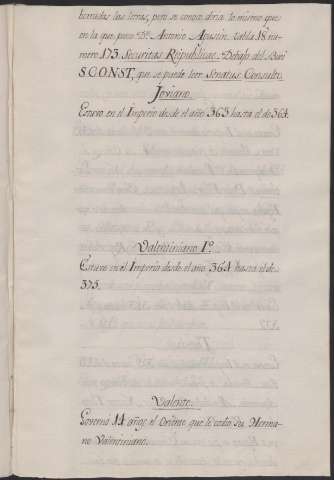 borradas las letras, pero se conoce diria lo mismo que
en la que pone Dn. Antonio Agustin tabla 18 nu-
mero 173 Securitas Reipublicae. Debajo del Buei
S.CONST, que se puede leer Senatus Consulto
Joviano.
Estuvo en el Imperio desde el año 363 hasta el de 364.
Valentiniano I.º
Estuvo en el Imperio desde el año 364 hasta el de
375.
Valente.
Governó 14 años el Oriente que le cedio su Herma-
no Valentiniano.